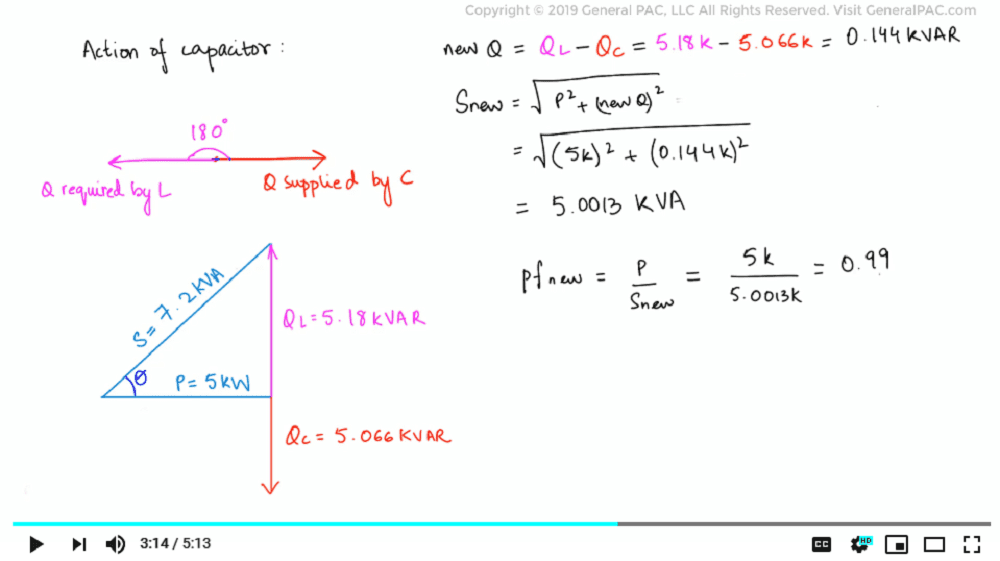 Copyright © 2019 General PAC, LLC All Rights Reserved. Visit GeneralPAC.com
Action of capacitor :
180°
Q required by L
Q supplied by C
S = 7.2 KVA
θ
P = 5KW
QL = 5.18 KVAR
Qc = 5.066 KVAR
new Q = QL - Qc = 5.18k - 5.066k = 0.144 KVAR
Snew = √P² + (new Q)²
= √(5k)² + (0.144k)²
= 5.0013 KVA
pfnew = P / Snew = 5k / 5.0013k = 0.99
3:14 / 5:13
CC
HD